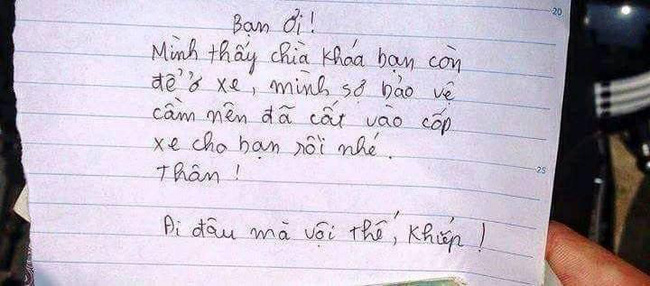 Bạn ơi!
20
Mình thấy chìa khóa bạn còn
để ở xe, mình sợ bảo vệ
cầm nên đã cất vào cốp
xe cho bạn rồi nhé.
25
Thân!
Đi đâu mà vội thế, khiếp!